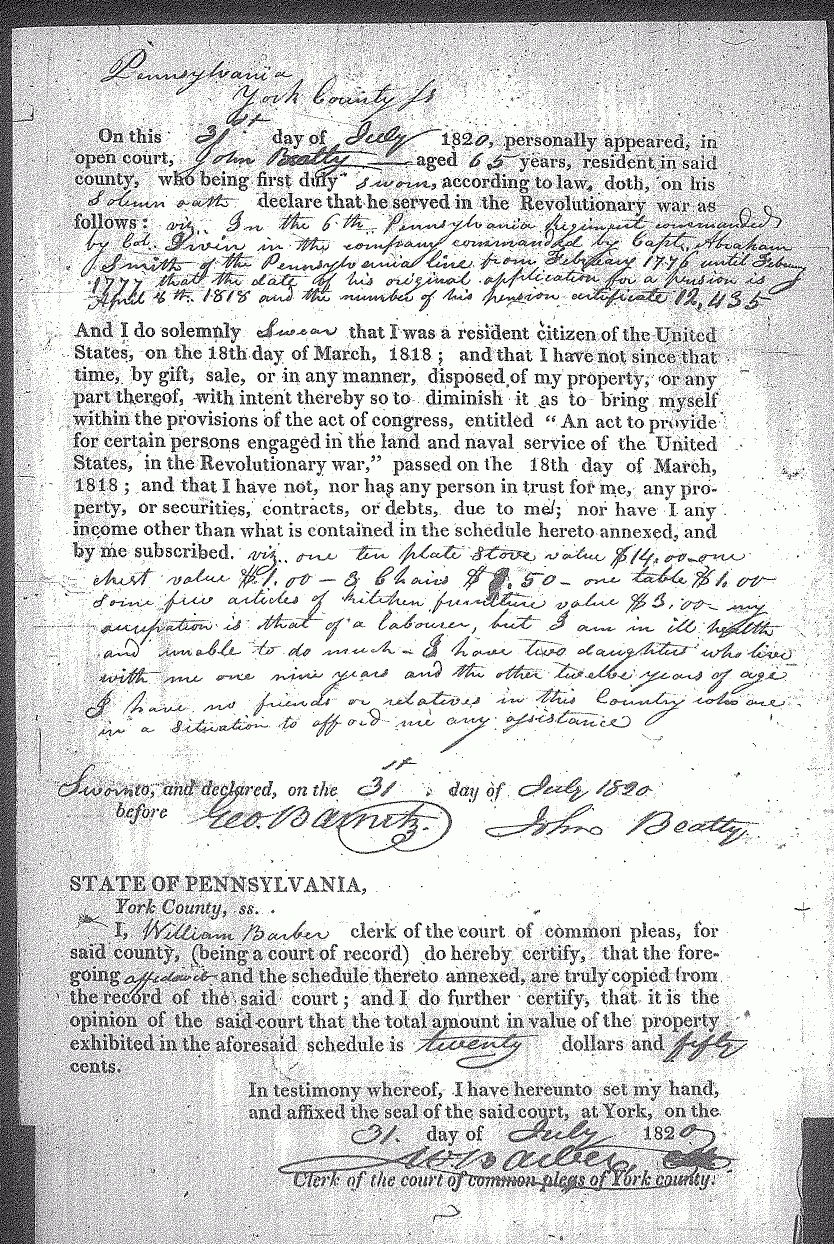 Pennsylvania
York County ss
On this 31st day of July 1820, personally appeared, in
open court, John Beatty aged 65 years, resident in said
county, who being first duly sworn, according to law, doth, on his
Solemn oath declare that he served in the Revolutionary war as
follows: viz. In the 6th Pennsylvania Regiment commanded
by Col. Irvin in the company commanded by Capt. Abraham
Smith of the Pennsylvania line from February 1776 until Febuary
1777 that the date of his original application for a pension is
April 8th. 1818 and the number of his pension certificate 12,435
And I do solemnly Swear that I was a resident citizen of the United
States, on the 18th day of March, 1818 ; and that I have not since that
time, by gift, sale, or in any manner, disposed of my property, or any
part thereof, with intent thereby so to diminish it as to bring myself
within the provisions of the act of congress, entitled “ An act to provide
for certain persons engaged in the land and naval service of the United
States, in the Revolutionary war,” passed on the 18th day of March,
1818 ; and that I have not, nor has any person in trust for me, any pro-
perty, or securities, contracts, or debts, due to me; nor have I any
income other than what is contained in the schedule hereto annexed, and
by me subscribed. viz. one ten plate stove value $14.00 - one
chest value $1.00 - 3 Chairs $1.50 - one table $1.00
some few articles of kitchen furniture value $3.00 - my
occupation is that of a labourer, but I am in ill health
and unable to do much - I have two daughters who live
with me one nine years and the other twelve years of age
I have no friends or relatives in this Country who are
in a situation to afford me any assistance
Sworn to, and declared, on the 31st day of July 1820
before Geo. Barnitz. John Beatty
STATE OF PENNSYLVANIA,
York County, ss.
I, William Barber clerk of the court of common pleas, for
said county, (being a court of record) do hereby certify, that the fore-
going affidavit and the schedule thereto annexed, are truly copied from
the record of the said court ; and I do further certify, that it is the
opinion of the said court that the total amount in value of the property
exhibited in the aforesaid schedule is twenty dollars and fifty
cents.
In testimony whereof, I have hereunto set my hand,
and affixed the seal of the said court, at York, on the
31. day of July 1820
W Barber
Clerk of the court of common pleas of York county.